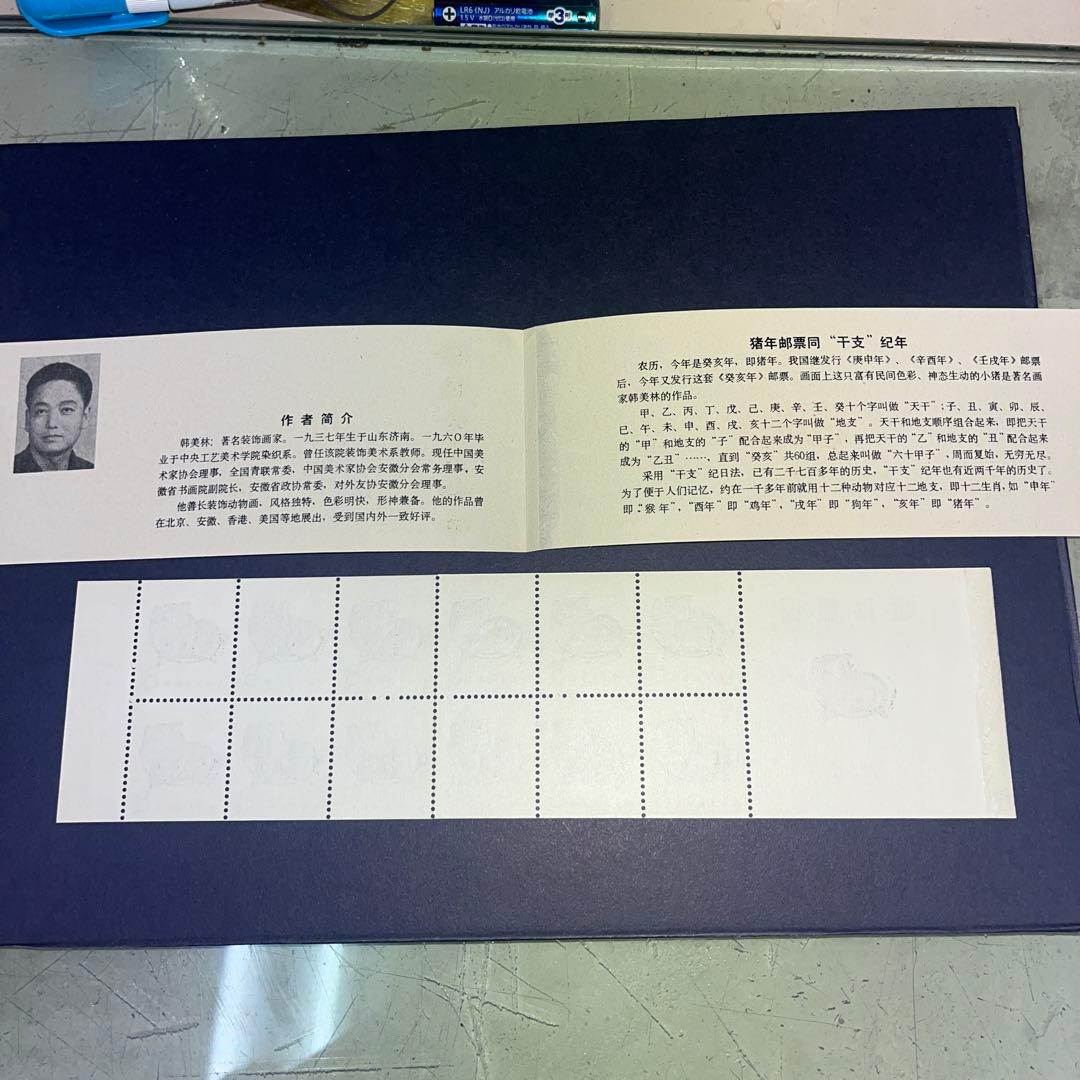 LR6 (NJ) アルカリ乾電池
1.5V 水銀0(ゼロ)使用
単3形
作者简介
韩美林；著名装饰画家。一九三七年生于山东济南。一九六〇年毕
业于中央工艺美术学院染织系。曾任该院装饰美术系教师。现任中国美
术家协会理事，全国青联常委，中国美术家协会安徽分会常务理事，安
徽省书画院副院长，安徽省政协常委，对外友协安徽分会理事。
他善长装饰动物画，风格独特，色彩明快，形神兼备。他的作品曾
在北京、安徽、香港、美国等地展出，受到国内外一致好评。
猪年邮票同“干支”纪年
农历，今年是癸亥年，即猪年。我国继发行《庚申年》、《辛酉年》、《壬戌年》邮票
后，今年又发行这套《癸亥年》邮票。画面上这只富有民间色彩、神态生动的小猪是著名画
家韩美林的作品。
甲、乙、丙、丁、戊、己、庚、辛、壬、癸十个字叫做“天干”；子、丑、寅、卯、辰、
巳、午、未、申、酉、戌、亥十二个字叫做“地支”。天干和地支顺序组合起来，即把天干
的“甲”和地支的“子”配合起来成为“甲子”，再把天干的“乙”和地支的“丑”配合起来
成为“乙丑”……，直到“癸亥”共60组，总起来叫做“六十甲子”，周而复始，无穷无尽。
采用“干支”纪日法，已有二千七百多年的历史，“干支”纪年也有近两千年的历史了。
为了便于人们记忆，约在一千多年前就用十二种动物对应十二地支，即十二生肖，如“申年”
即“猴年”，“酉年”即“鸡年”，“戌年”即“狗年”，“亥年”即“猪年”。